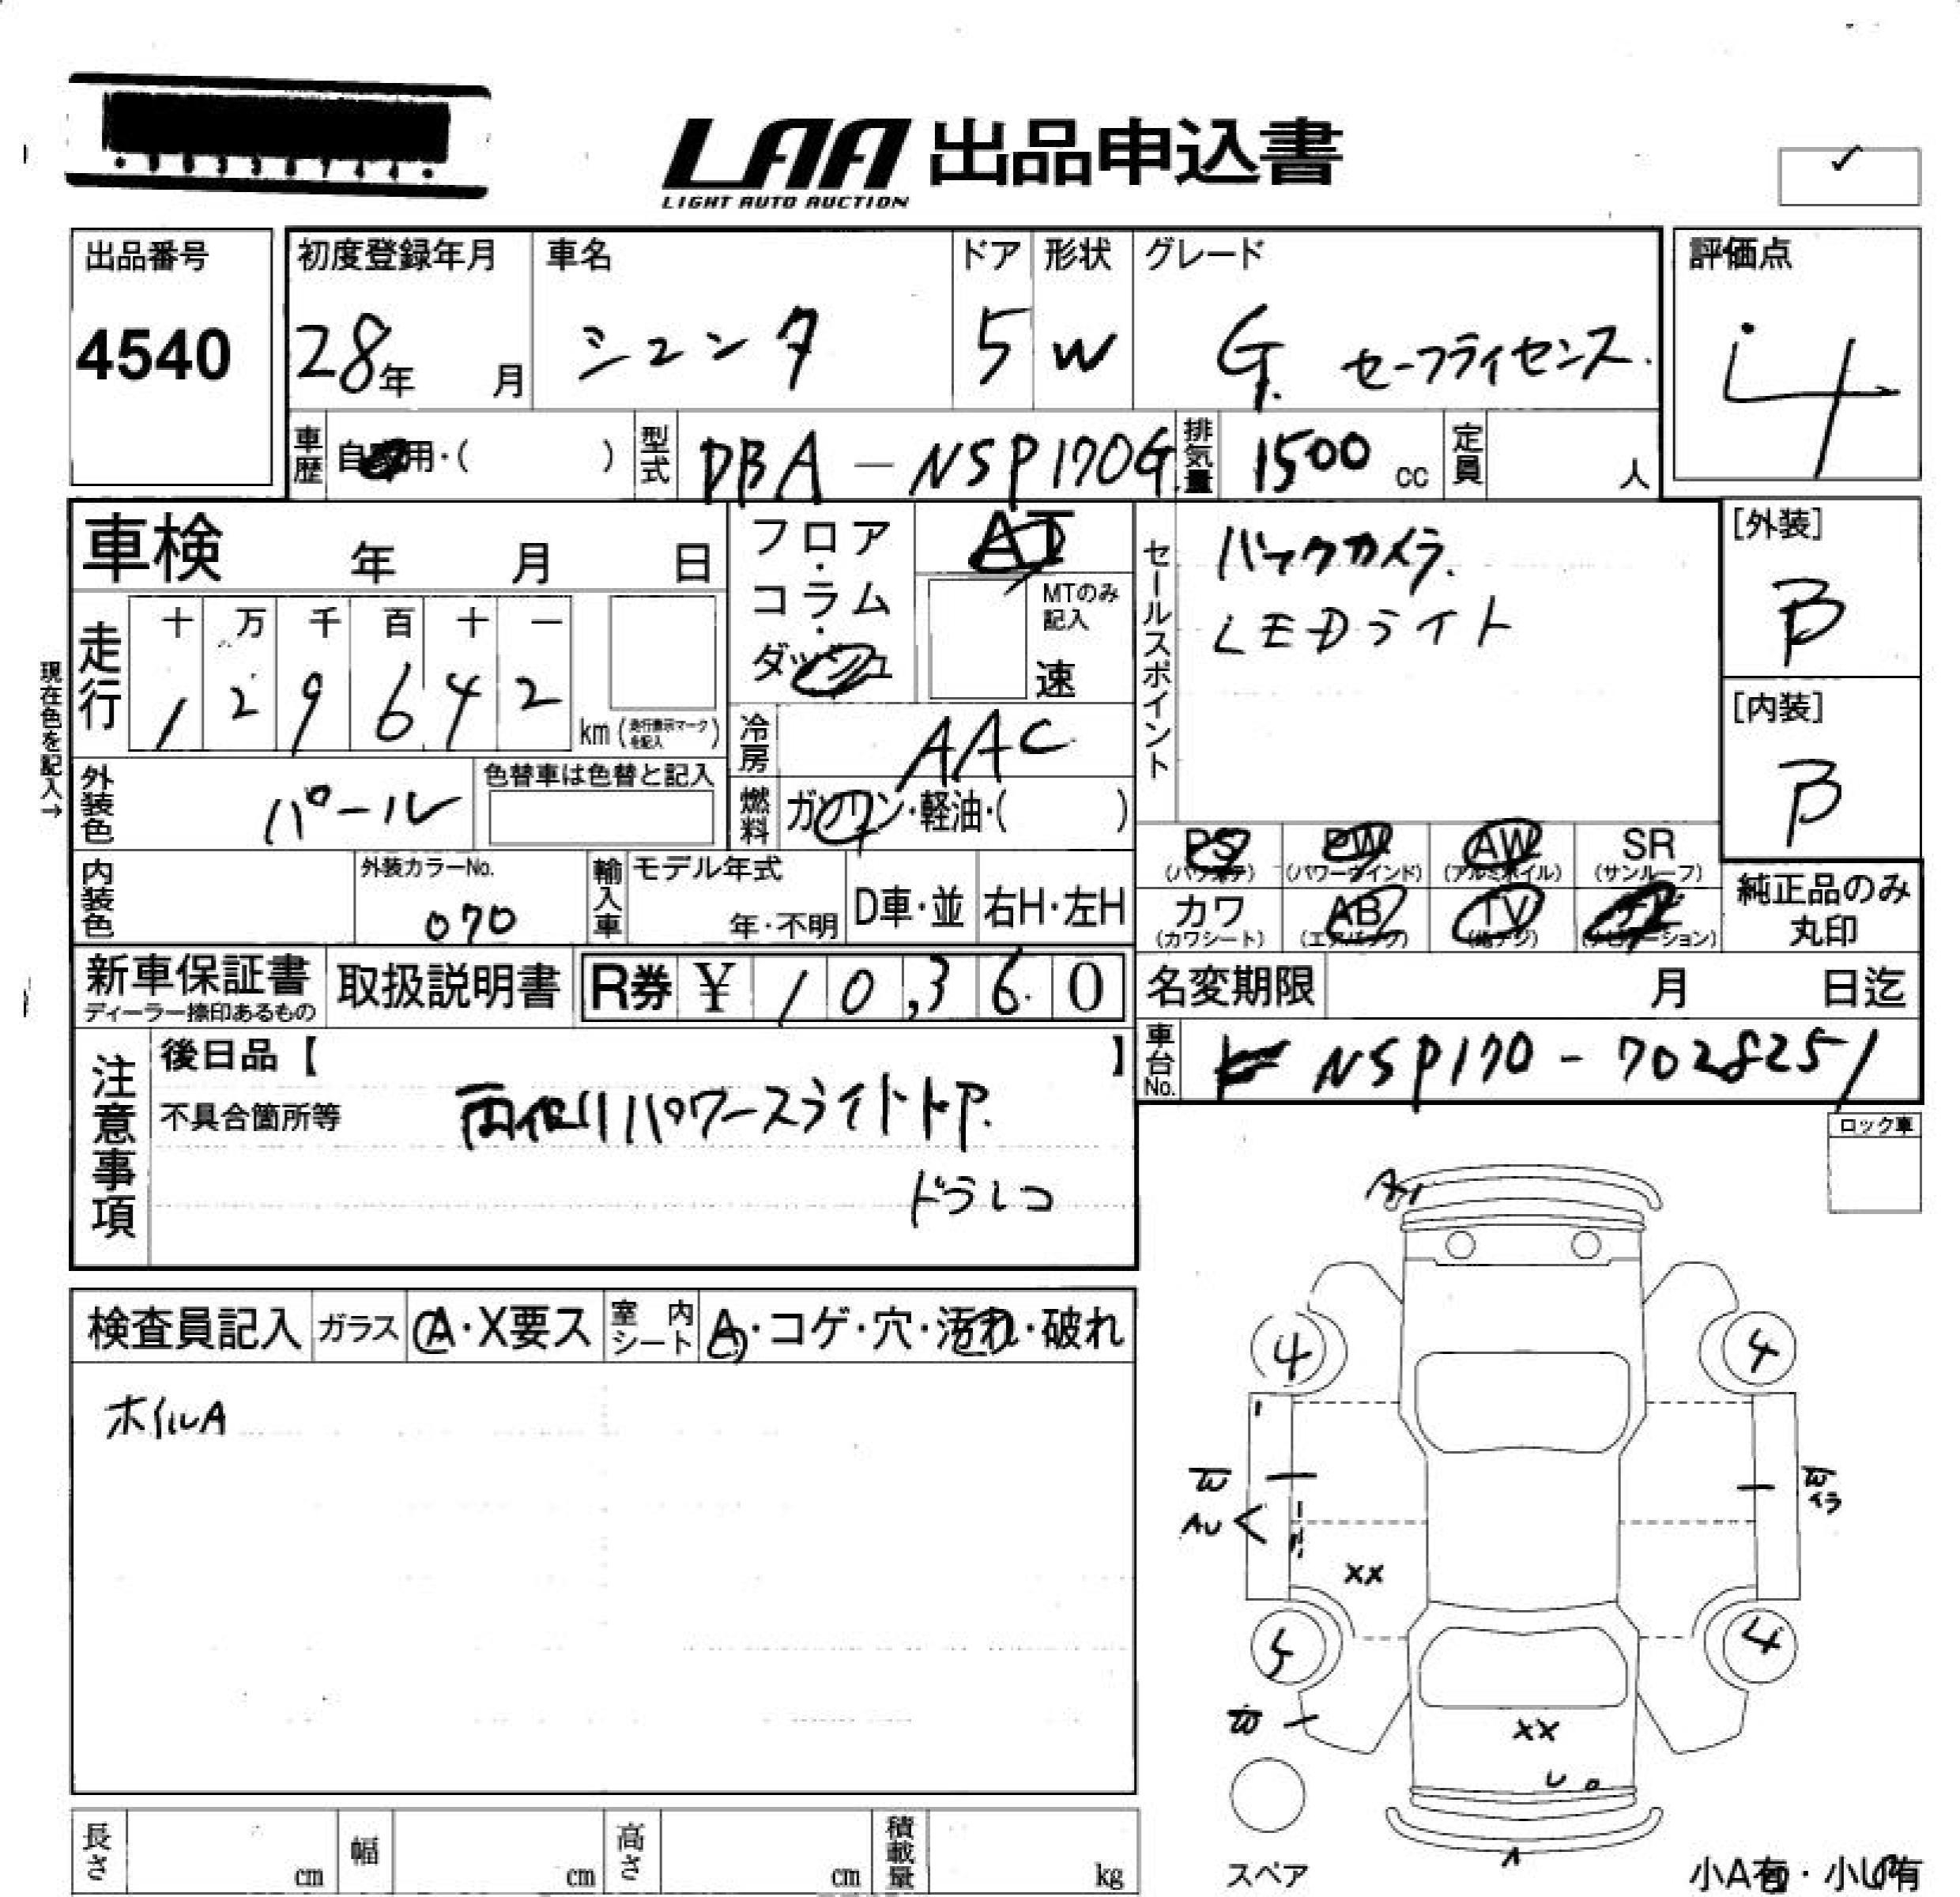 LAA 出品申込書
LIGHT AUTO AUCTION
出品番号
4540
初度登録年月
28年 月
車名
シエンタ
ドア
5
形状
W
グレード
G. セーフティセンス.
評価点
4
車歴 自家用・( )
型式 DBA-NSP170G
排気量 1500 cc
定員 人
車検 年 月 日
フロア・コラム・ダッシュ
AT
MTのみ記入
速
現在色を記入→
走行
十 万 千 百 十 一
1 2 9 6 4 2
km (走行表示マークを記入)
冷房 AAC
燃料 ガソリン・軽油・( )
外装色 パール
色替車は色替と記入
内装色
外装カラーNo.
070
輸入車
モデル年式
年・不明
D車・並
右H・左H
セールスポイント
バックカメラ.
LEDライト
[外装]
B
[内装]
B
PS PW AW SR
(パワステ) (パワーウインド) (アルミホイル) (サンルーフ)
カワ AB TV ナビ
(カワシート) (エアバッグ) (地デジ) (ナビゲーション)
純正品のみ
丸印
新車保証書
ディーラー捺印あるもの
取扱説明書
R券 ¥ 10,360
名変期限 月 日迄
車台No. NSP170-7028251
注意事項
後日品【 】
不具合箇所等
両側パワースライドドア.
ドラレコ
ロック車
検査員記入 ガラス A・X要ス 室内シート A・コゲ・穴・汚れ・破れ
ホイルA
A1
4 4
W
AU
W
XX
5 4
W
XX
U
スペア
小A有・小U有
長さ cm 幅 cm 高さ cm 積載量 kg